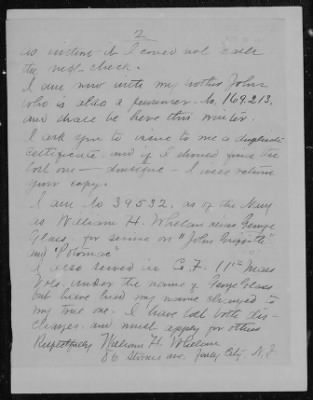 2
is evident that I could not cash
the next check.
I am now with my brother John
who is also a pensioner No. 169,213,
and shall be here this winter.
I ask you to issue to me a duplicate
certificate and if I should find the
lost one — I will return
your copy.
I am No 39532, as of the Navy
is William H. Whelan alias George
Glass, for service on "John Griffith"
and "Potomac"
I also served in Co. F. 11th Mass
Vols under the name of George Glass
but have had my name changed to
my true one. I have lost both dis-
charges and must apply for others
Respectfully William H. Whelan
86 ave. Jersey City N. J.